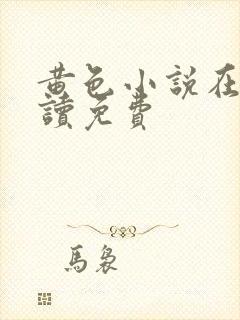 黄色小説在
讀免費
馬裊